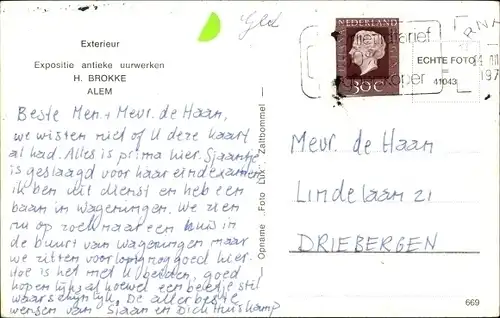 Exterieur
Expositie antieke uurwerken
H. BROKKE
ALEM
Beste Men. + Mevr. de Haan,
we wisten niet of U deze kaart
al had. Alles is prima hier. Sjaantje
is geslaagd voor haar eindexamen
ik ben uit dienst en heb een
baan in wageningen. We zien
nu op zoek naar een huis in
de buurt van wageningen maar
we zitten voorlopig nog goed hier.
Hoe is het met U beiden, goed
hopen wij al hoewel een beetje stil
waarschijnlijk. De allerbeste
wensen van Sjaan en Dick
Opname „Foto Lux” Zaltbommel
NEDERLAND
30c
ECHTE FOTO
41043
197
Mevr. de Haan
Lindelaan 21
DRIEBERGEN
669